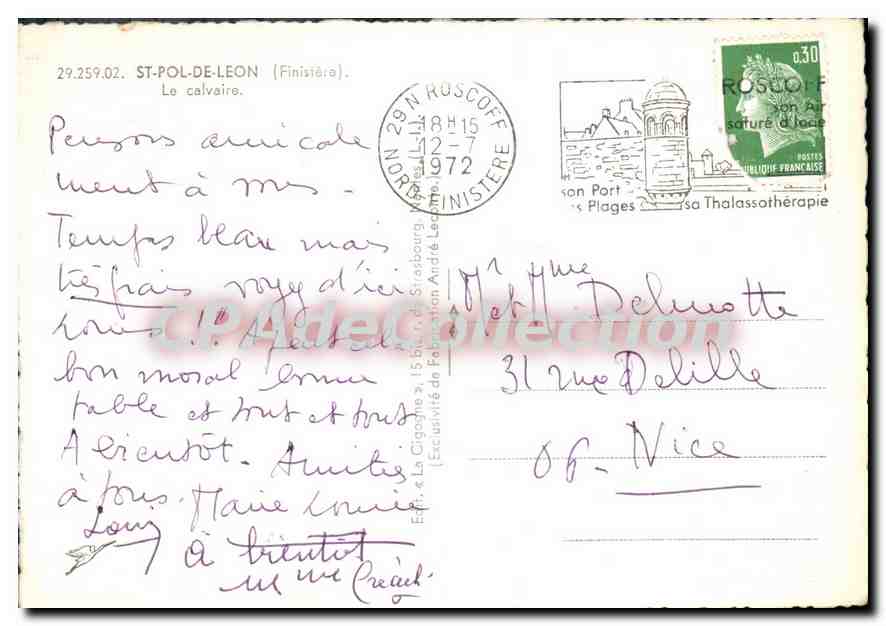 29.259.02. ST-POL-DE-LEON (Finistère).
Le calvaire.
Pensons amicale
ment à
Temps beau mais
très frais voyez d'ici
bon moral bonne
table et tout et tout
A bientôt - Amitiés
à tous. Marie Louise
Louis
à bientôt
Mme Créach
Edit. « La Cigogne », 15 bis, r. de Strasbourg, Nantes (L.-I.)
(Exclusivité de Fabrication André Leconte.)
29 N ROSCOFF
18 H 15
12-7
1972
NORD-FINISTERE
ROSCOFF
son Air
saturé d'Iode
son Port
s Plages
sa Thalassothérapie
0,30
POSTES
REPUBLIQUE FRANÇAISE
Mr Mme
et M Delmotte
31 rue Delille
06 - Nice
CPAdeCollection